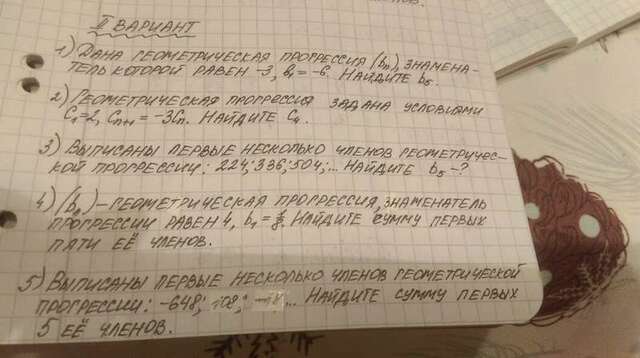 II ВАРИАНТ
1) ДАНА ГЕОМЕТРИЧЕСКАЯ ПРОГРЕССИЯ (bn), ЗНАМЕНА-
ТЕЛЬ КОТОРОЙ РАВЕН -3, b1 = -6. НАЙДИТЕ b5.
2) ГЕОМЕТРИЧЕСКАЯ ПРОГРЕССИЯ ЗАДАНА УСЛОВИЯМИ
C1=2, Cn+1 = -3Cn. НАЙДИТЕ C4.
3) ВЫПИСАНЫ ПЕРВЫЕ НЕСКОЛЬКО ЧЛЕНОВ ГЕОМЕТРИЧЕС-
КОЙ ПРОГРЕССИИ: 224; 336; 504;... НАЙДИТЕ b5-?
4) (bn) - ГЕОМЕТРИЧЕСКАЯ ПРОГРЕССИЯ, ЗНАМЕНАТЕЛЬ
ПРОГРЕССИИ РАВЕН 4, b1 = НАЙДИТЕ СУММУ ПЕРВЫХ
ПЯТИ ЕЁ ЧЛЕНОВ.
5) ВЫПИСАНЫ ПЕРВЫЕ НЕСКОЛЬКО ЧЛЕНОВ ГЕОМЕТРИЧЕСКОЙ
ПРОГРЕССИИ: -648; 108; -18;... НАЙДИТЕ СУММУ ПЕРВЫХ
5 ЕЁ ЧЛЕНОВ.